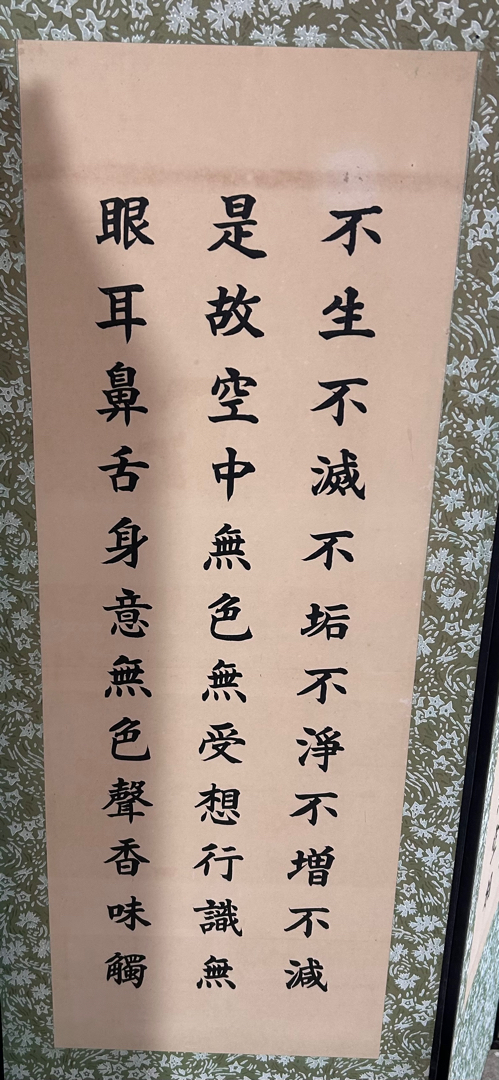 不生不滅不垢不淨不增不減
是故空中無色無受想行識無
眼耳鼻舌身意無色聲香味觸